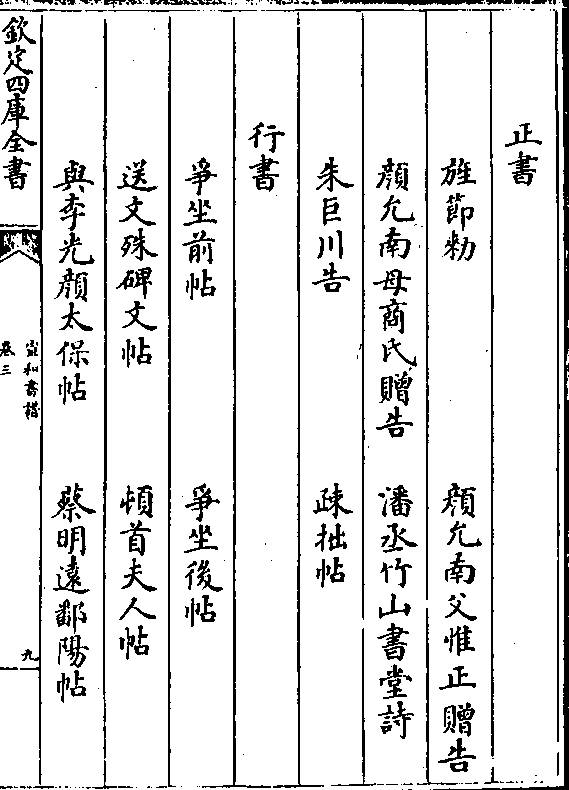 正書
旌節勑　顏允南父惟正贈告
顏允南母商氏贈告　潘丞竹山書堂詩
朱巨川告　疎拙帖
行書
爭坐前帖　爭坐後帖
送文殊碑文帖　頓首夫人帖
與李光顏太保帖　蔡明遠鄱陽帖
欽定四庫全書
宣和書譜
卷三
九